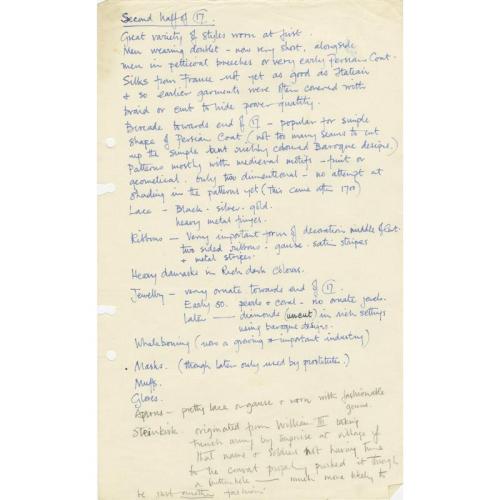 Second half of 17.
Great variety of styles worn at first.
Men wearing doublet - now very short, alongside
men in petticoat breeches or very early Persian Coat.
Silks from France not yet as good as Italian
& so earlier garments were often covered with
braid or cut to hide power quality.
Brocade towards end of 17 - popular for simple
shape of Persian Coat (not too many seams to cut
up the simple but richly coloured Baroque designs)
Patterns mostly with medieval motifs - fruit or
geometical. Only two dimentional - no attempt at
shading in the patterns yet (This came after 1700)
Lace - Black - silver - gold.
heavy metal fringes.
Ribbons - Very important form of decoration middle of Cent.
two sided ribbons - gauze - satin stripes
& metal stripes.
Heavy damasks in Rich dark colours.
Jewellry - very ornate towards end of 17.
Early 50. pearls & coral - no ornate jewels.
Later - diamonds (uncut) in rich settings
using baroque designs.
Whaleboning (now a growing & important industry)
Masks. (though later only used by prostitute.)
Muffs.
Gloves.
Aprons - pretty lace or gauze & worn with fashionable
gowns.
Steinkirk - originated from William III taking
french army by surprise at village of
that name & soldiers not having time
to tie cravat properly pushed it through
a button hole - much more likely to
be just another fashion!